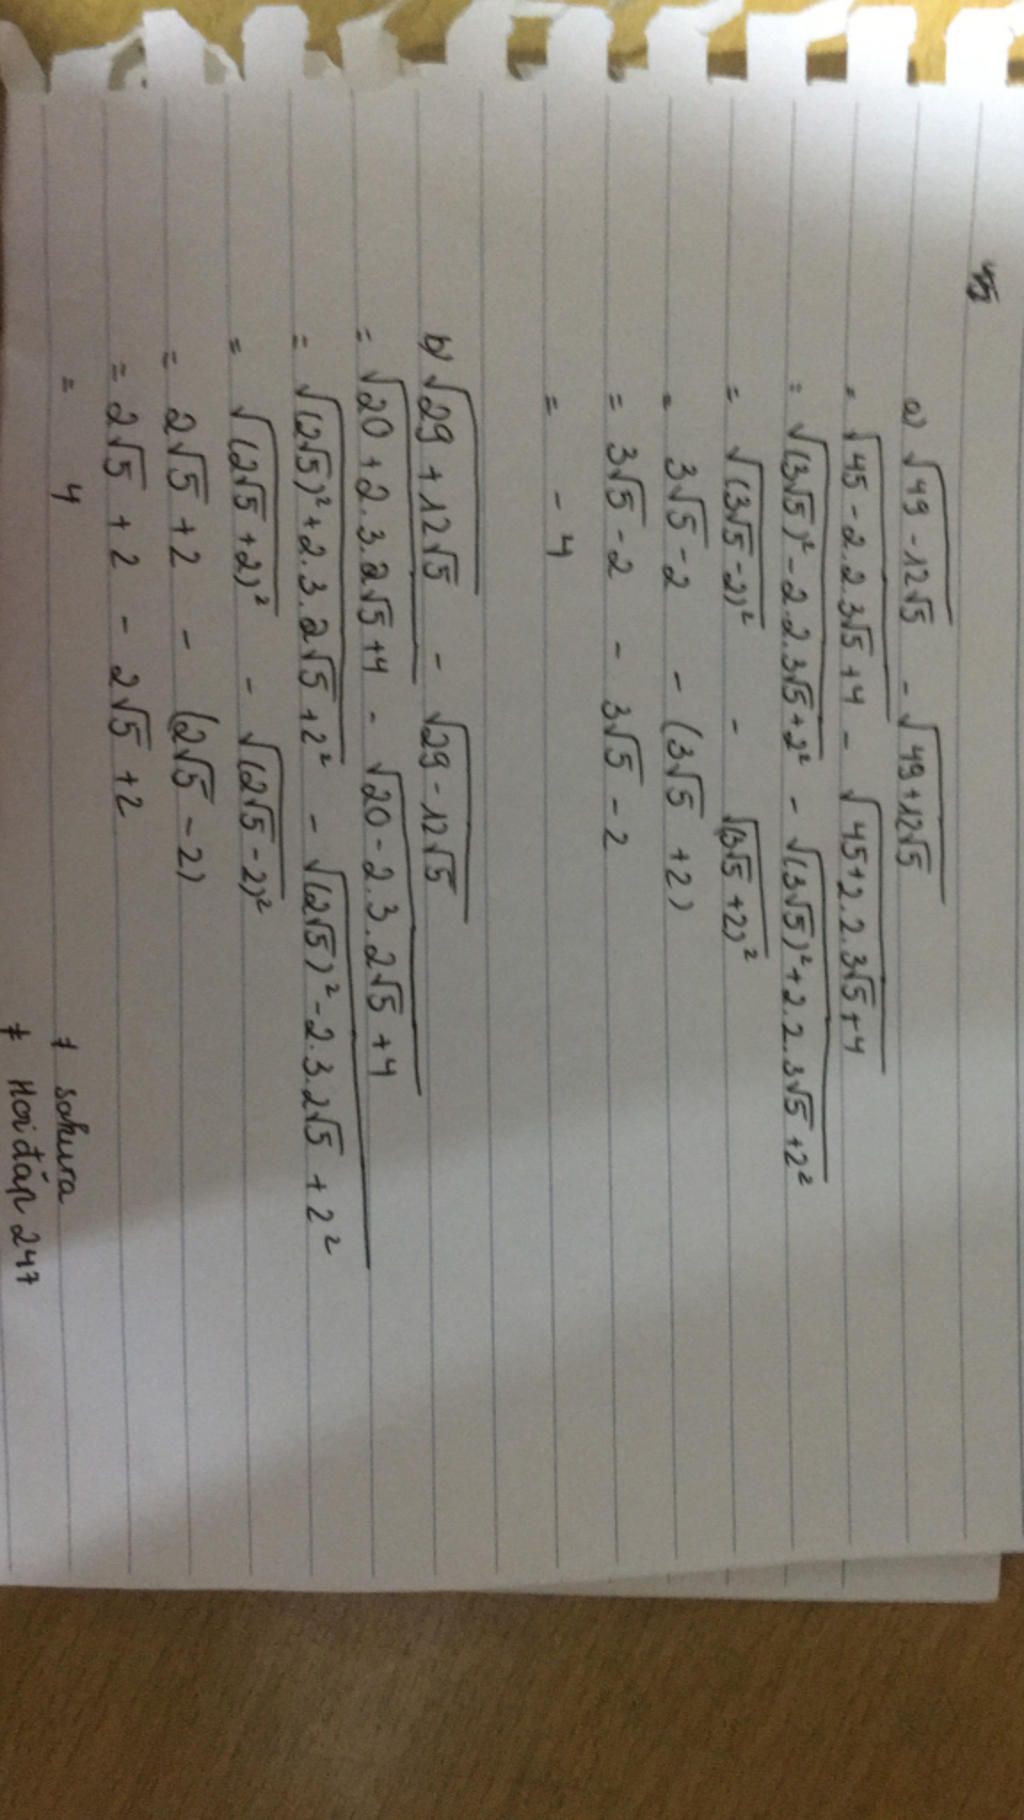 a) √(49 - 12√5) - √(49 + 12√5)
= √(45 - 2.2.3√5 + 4) - √(45 + 2.2.3√5 + 4)
= √((3√5)² - 2.2.3√5 + 2²) - √((3√5)² + 2.2.3√5 + 2²)
= √((3√5 - 2)²) - √((3√5 + 2)²)
= 3√5 - 2 - (3√5 + 2)
= 3√5 - 2 - 3√5 - 2
= - 4
b) √(29 + 12√5) - √(29 - 12√5)
= √(20 + 2.3.2√5 + 4) - √(20 - 2.3.2√5 + 4)
= √((2√5)² + 2.3.2√5 + 2²) - √((2√5)² - 2.3.2√5 + 2²)
= √((2√5 + 2)²) - √((2√5 - 2)²)
= 2√5 + 2 - (2√5 - 2)
= 2√5 + 2 - 2√5 + 2
= 4
≠ sakura
≠ Hoi đáp 247